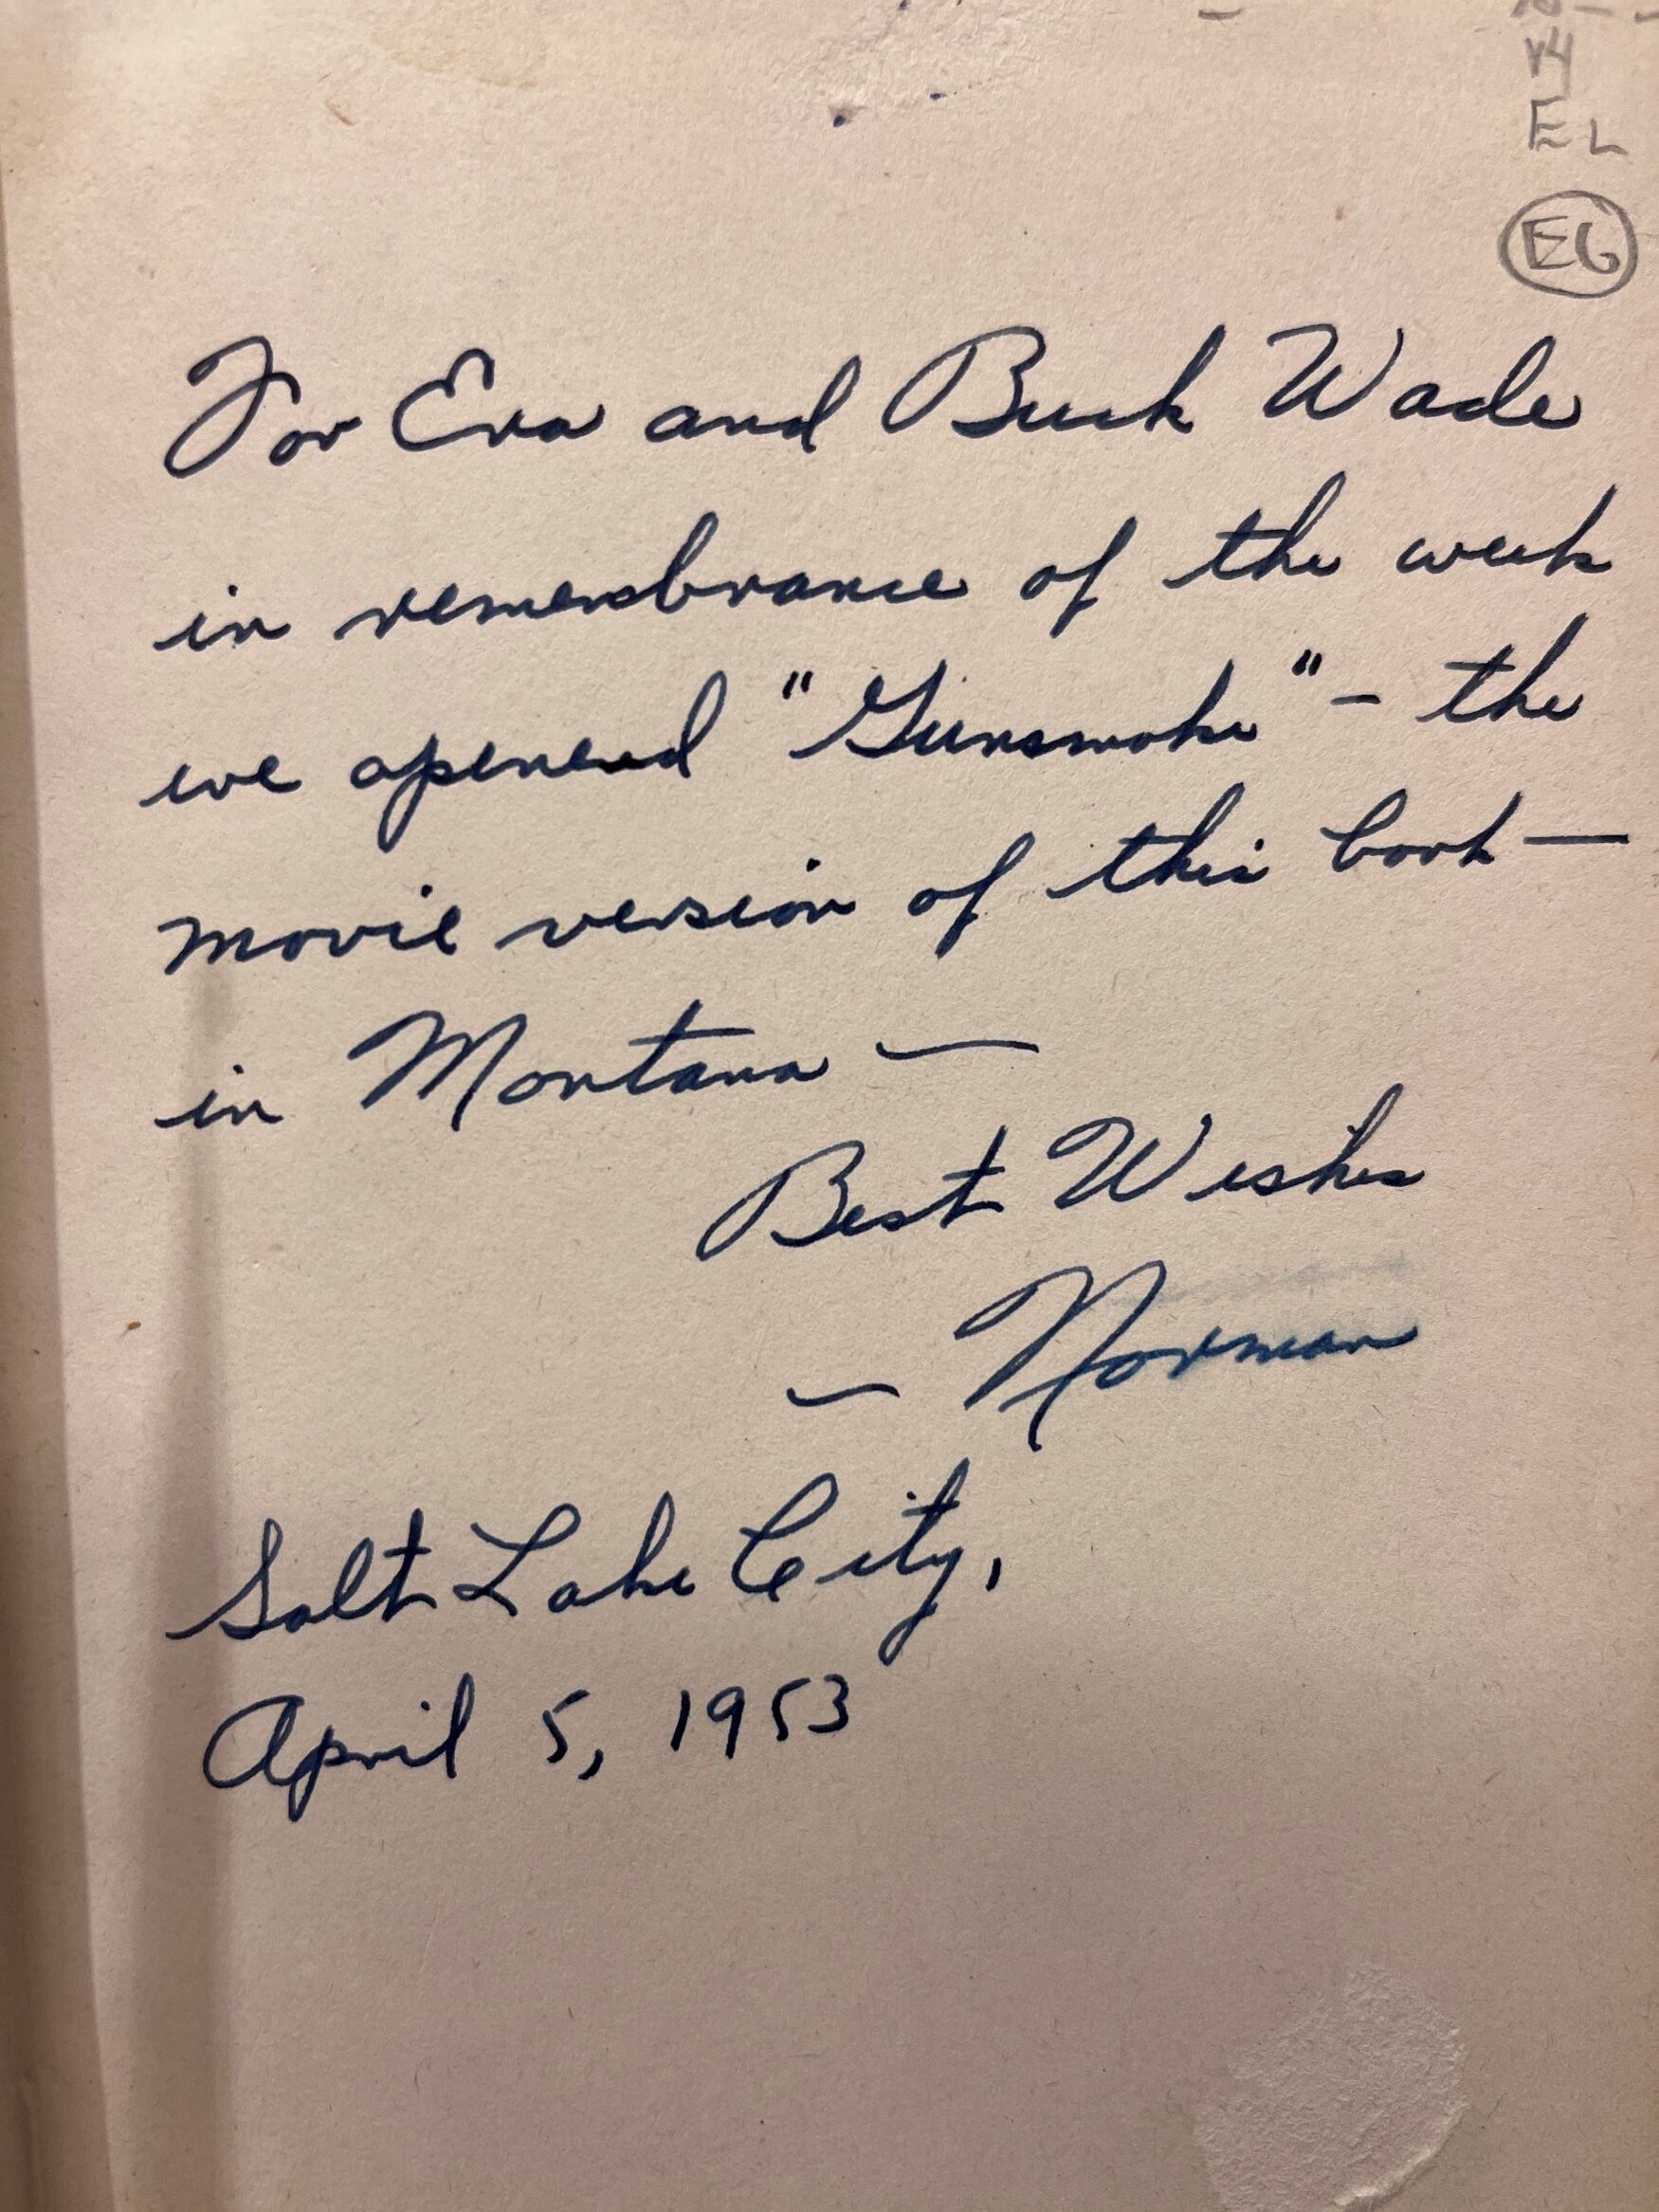 V4
EL
EG
For Eva and Buck Wade
in remembrance of the week
we opened "Gunsmoke" - the
movie version of this book —
in Montana —
Best Wishes
— Norman
Salt Lake City,
April 5, 1953